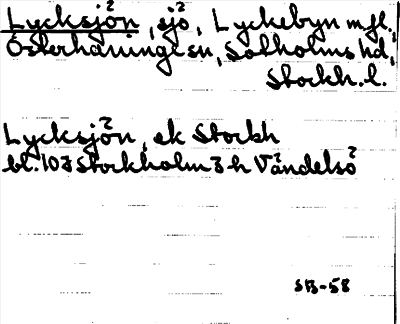 Lycksjön, sjö, Lyckebyn m fl.,
Österhaninge sn, Sotholms hd,
Stockh. l.
Lycksjön, ek Stockh
bl. 10J Stockholm J h Vändelsö
SB-58